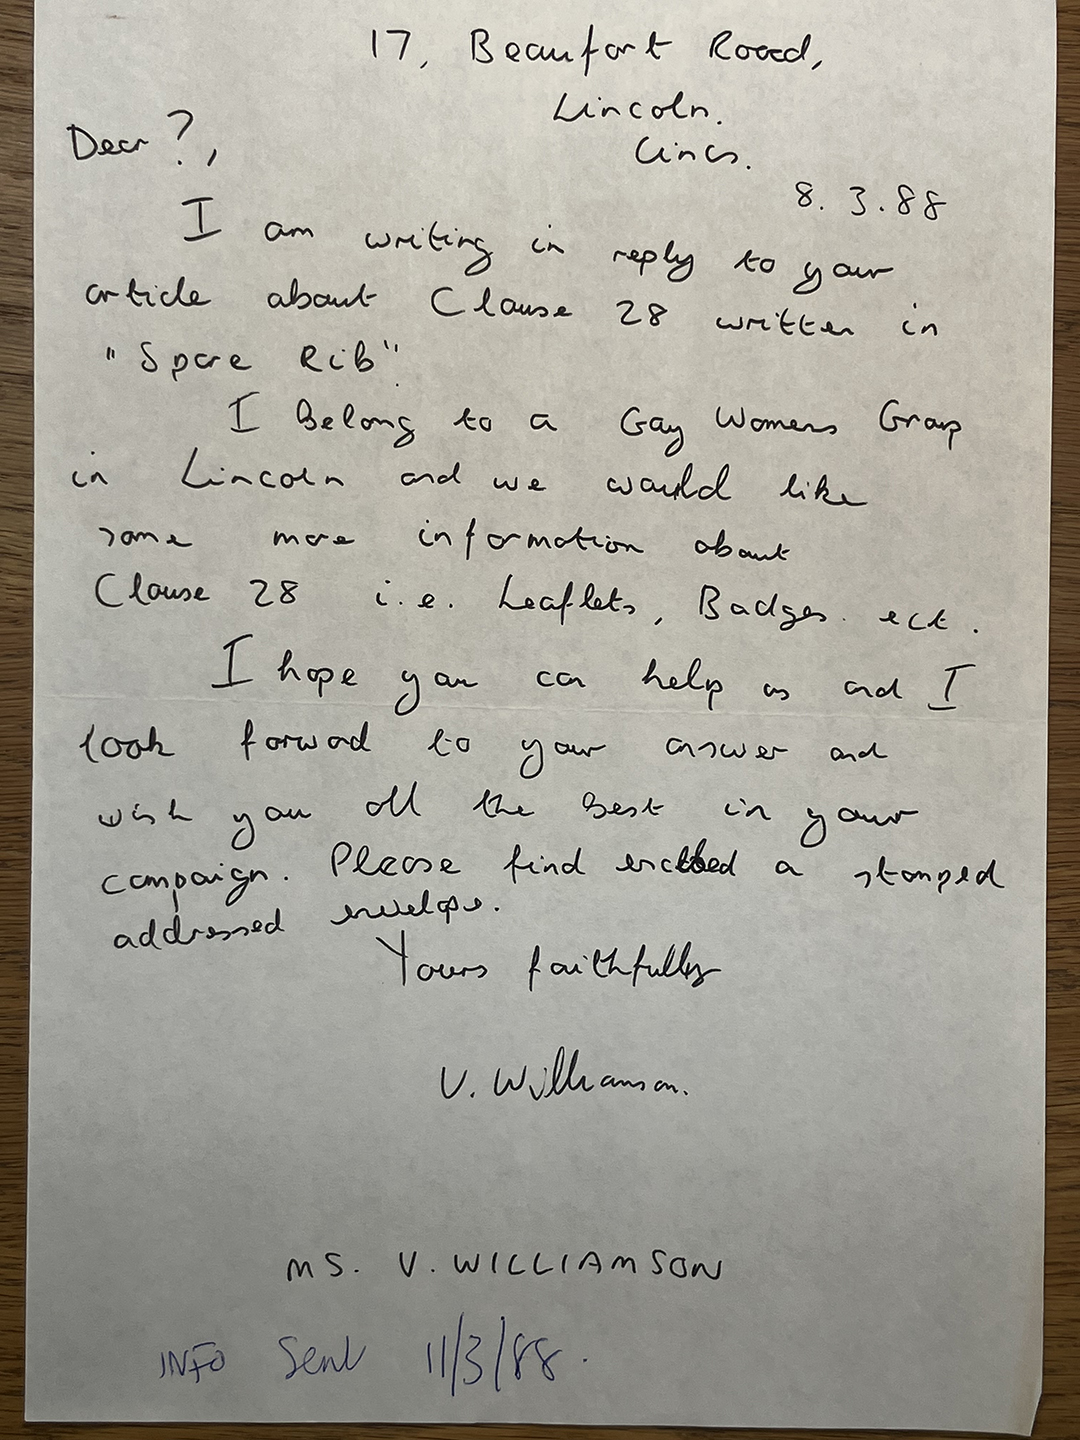 17, Beaufort Road,
Lincoln.
Lincs.
8.3.88
Dear ?,
I am writing in reply to your
article about Clause 28 written in
"Spare Rib".
I Belong to a Gay Womens Group
in Lincoln and we would like
some more information about
Clause 28 i.e. Leaflets, Badges. ect.
I hope you can help us and I
look forward to your answer and
wish you all the Best in your
campaign. Please find a stamped
addressed envelope.
Yours faithfully
V. Williamson.
MS. V. WILLIAMSON
INFO Sent 11/3/88.